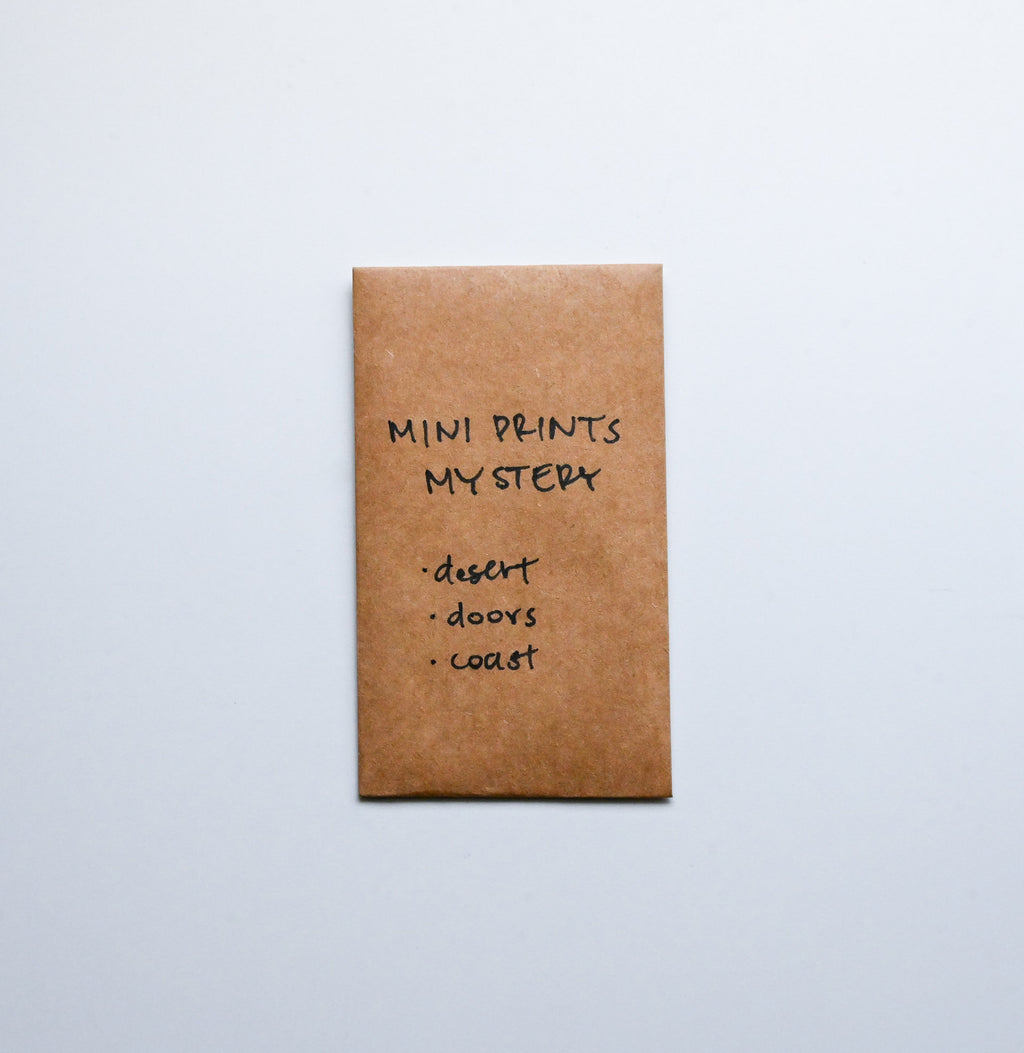 MINI PRINTS
MYSTERY
· desert
· doors
· coast